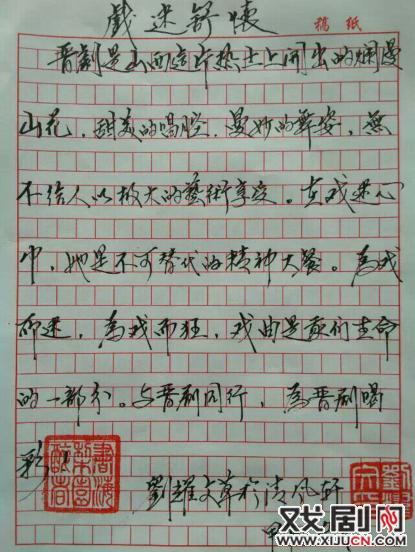 戲迷舒懷
稿紙
晋劇是山西這片热土上開出的烂漫
山花，甜美的唱腔，曼妙的舞姿，無
不给人以极大的藝術享受。在戏迷心
中，她是不可替代的精神大餐。為戏
而迷，為戏而狂，戏曲是我们生命
的一部分。与晋剧同行，為晋剧喝
彩！
劉耀文草於清风轩
甲
戏剧网
www.XIJUCN.com